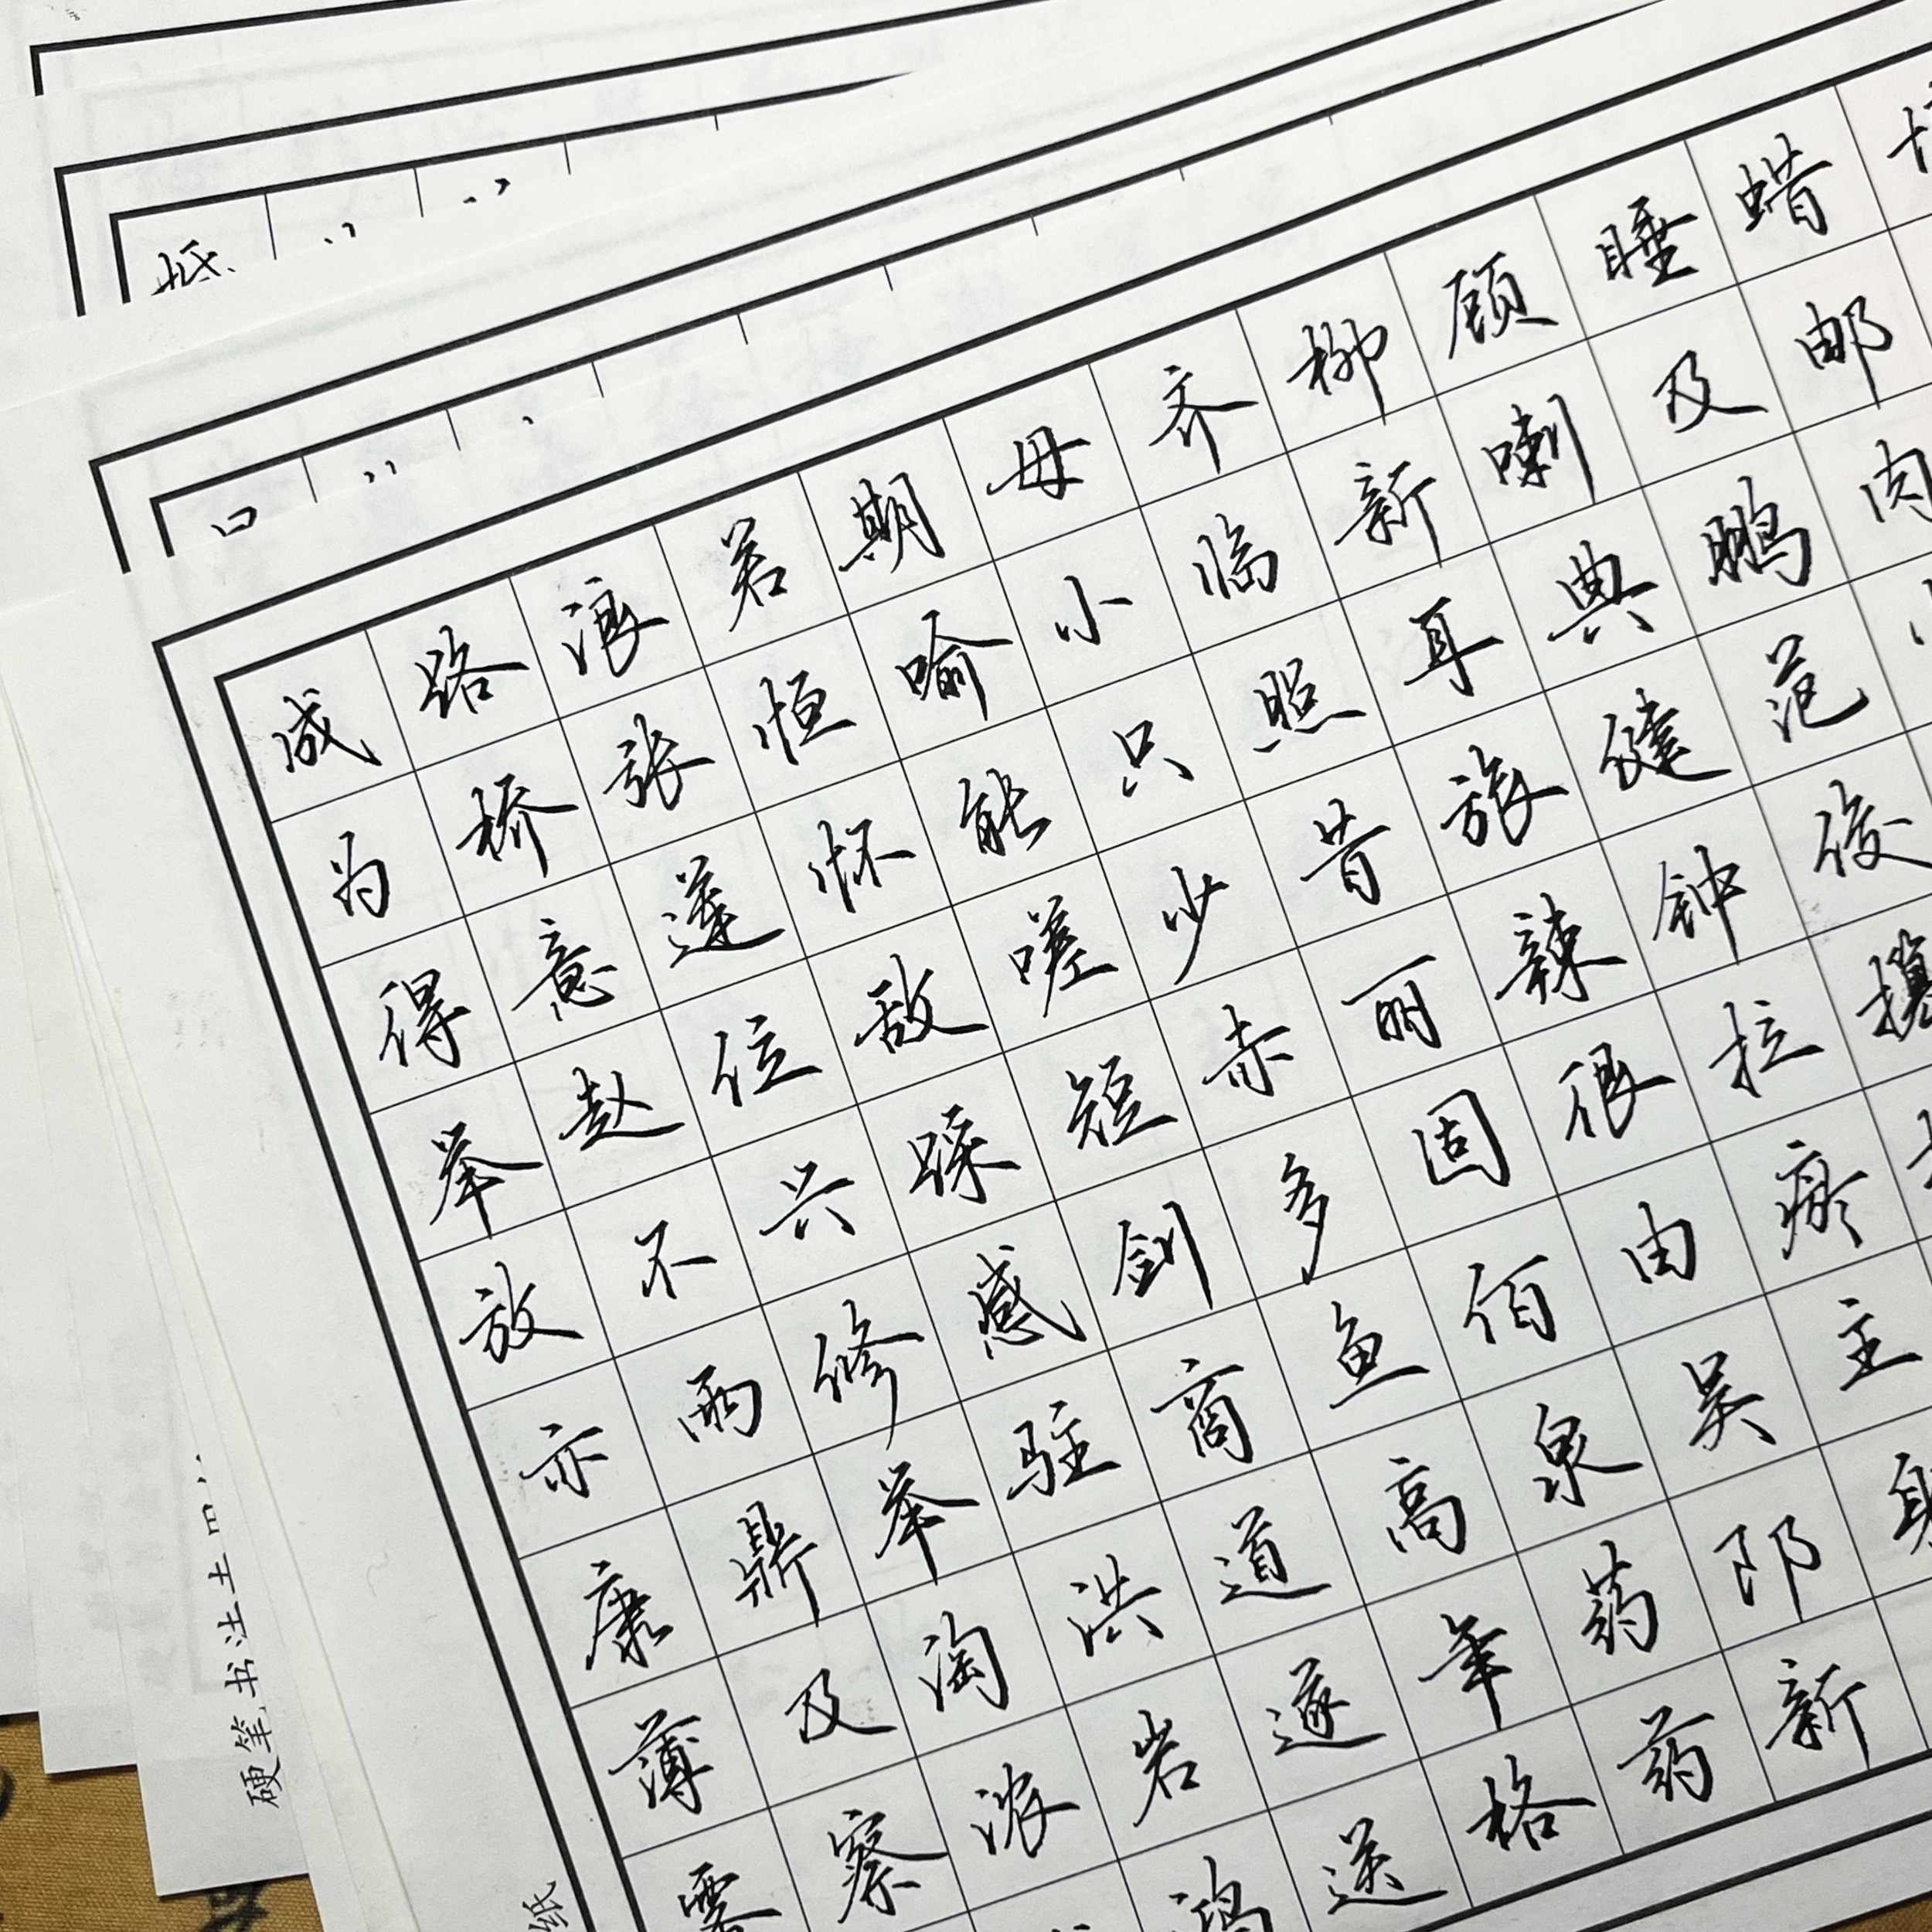 成路浪若期母齐柳顾睡蜡
为桥张恒喻小临新喇及邮
得意蓬怀能只照耳典鹏肉
举赵位敌嗟少昔旅健范
放不兴踩短赤丽辣钟俊
亦雨修感剑多固很拉携
康鼎举驻商鱼佰由
薄及淘洪道高泉吴主
察岩遂年药
鸿送格药新
硬笔书法
纸